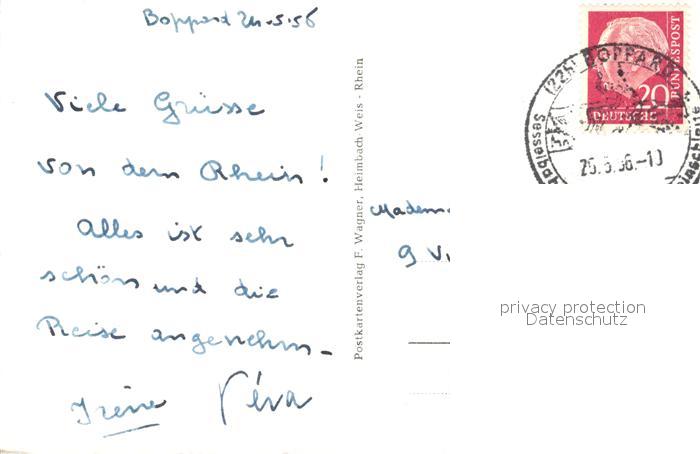 Boppard 24.5.56
Viele Grüsse
von dem Rhein!
Alles ist sehr
schön und die
Reise angenehm -
Irène Véva
Postkartenverlag F. Wagner, Heimbach-Weis - Rhein
20
DEUTSCHE
BUNDESPOST
(22b) BOPPARD
26.5.56.-10
Sesselbahn
9
privacy protection
Datenschutz